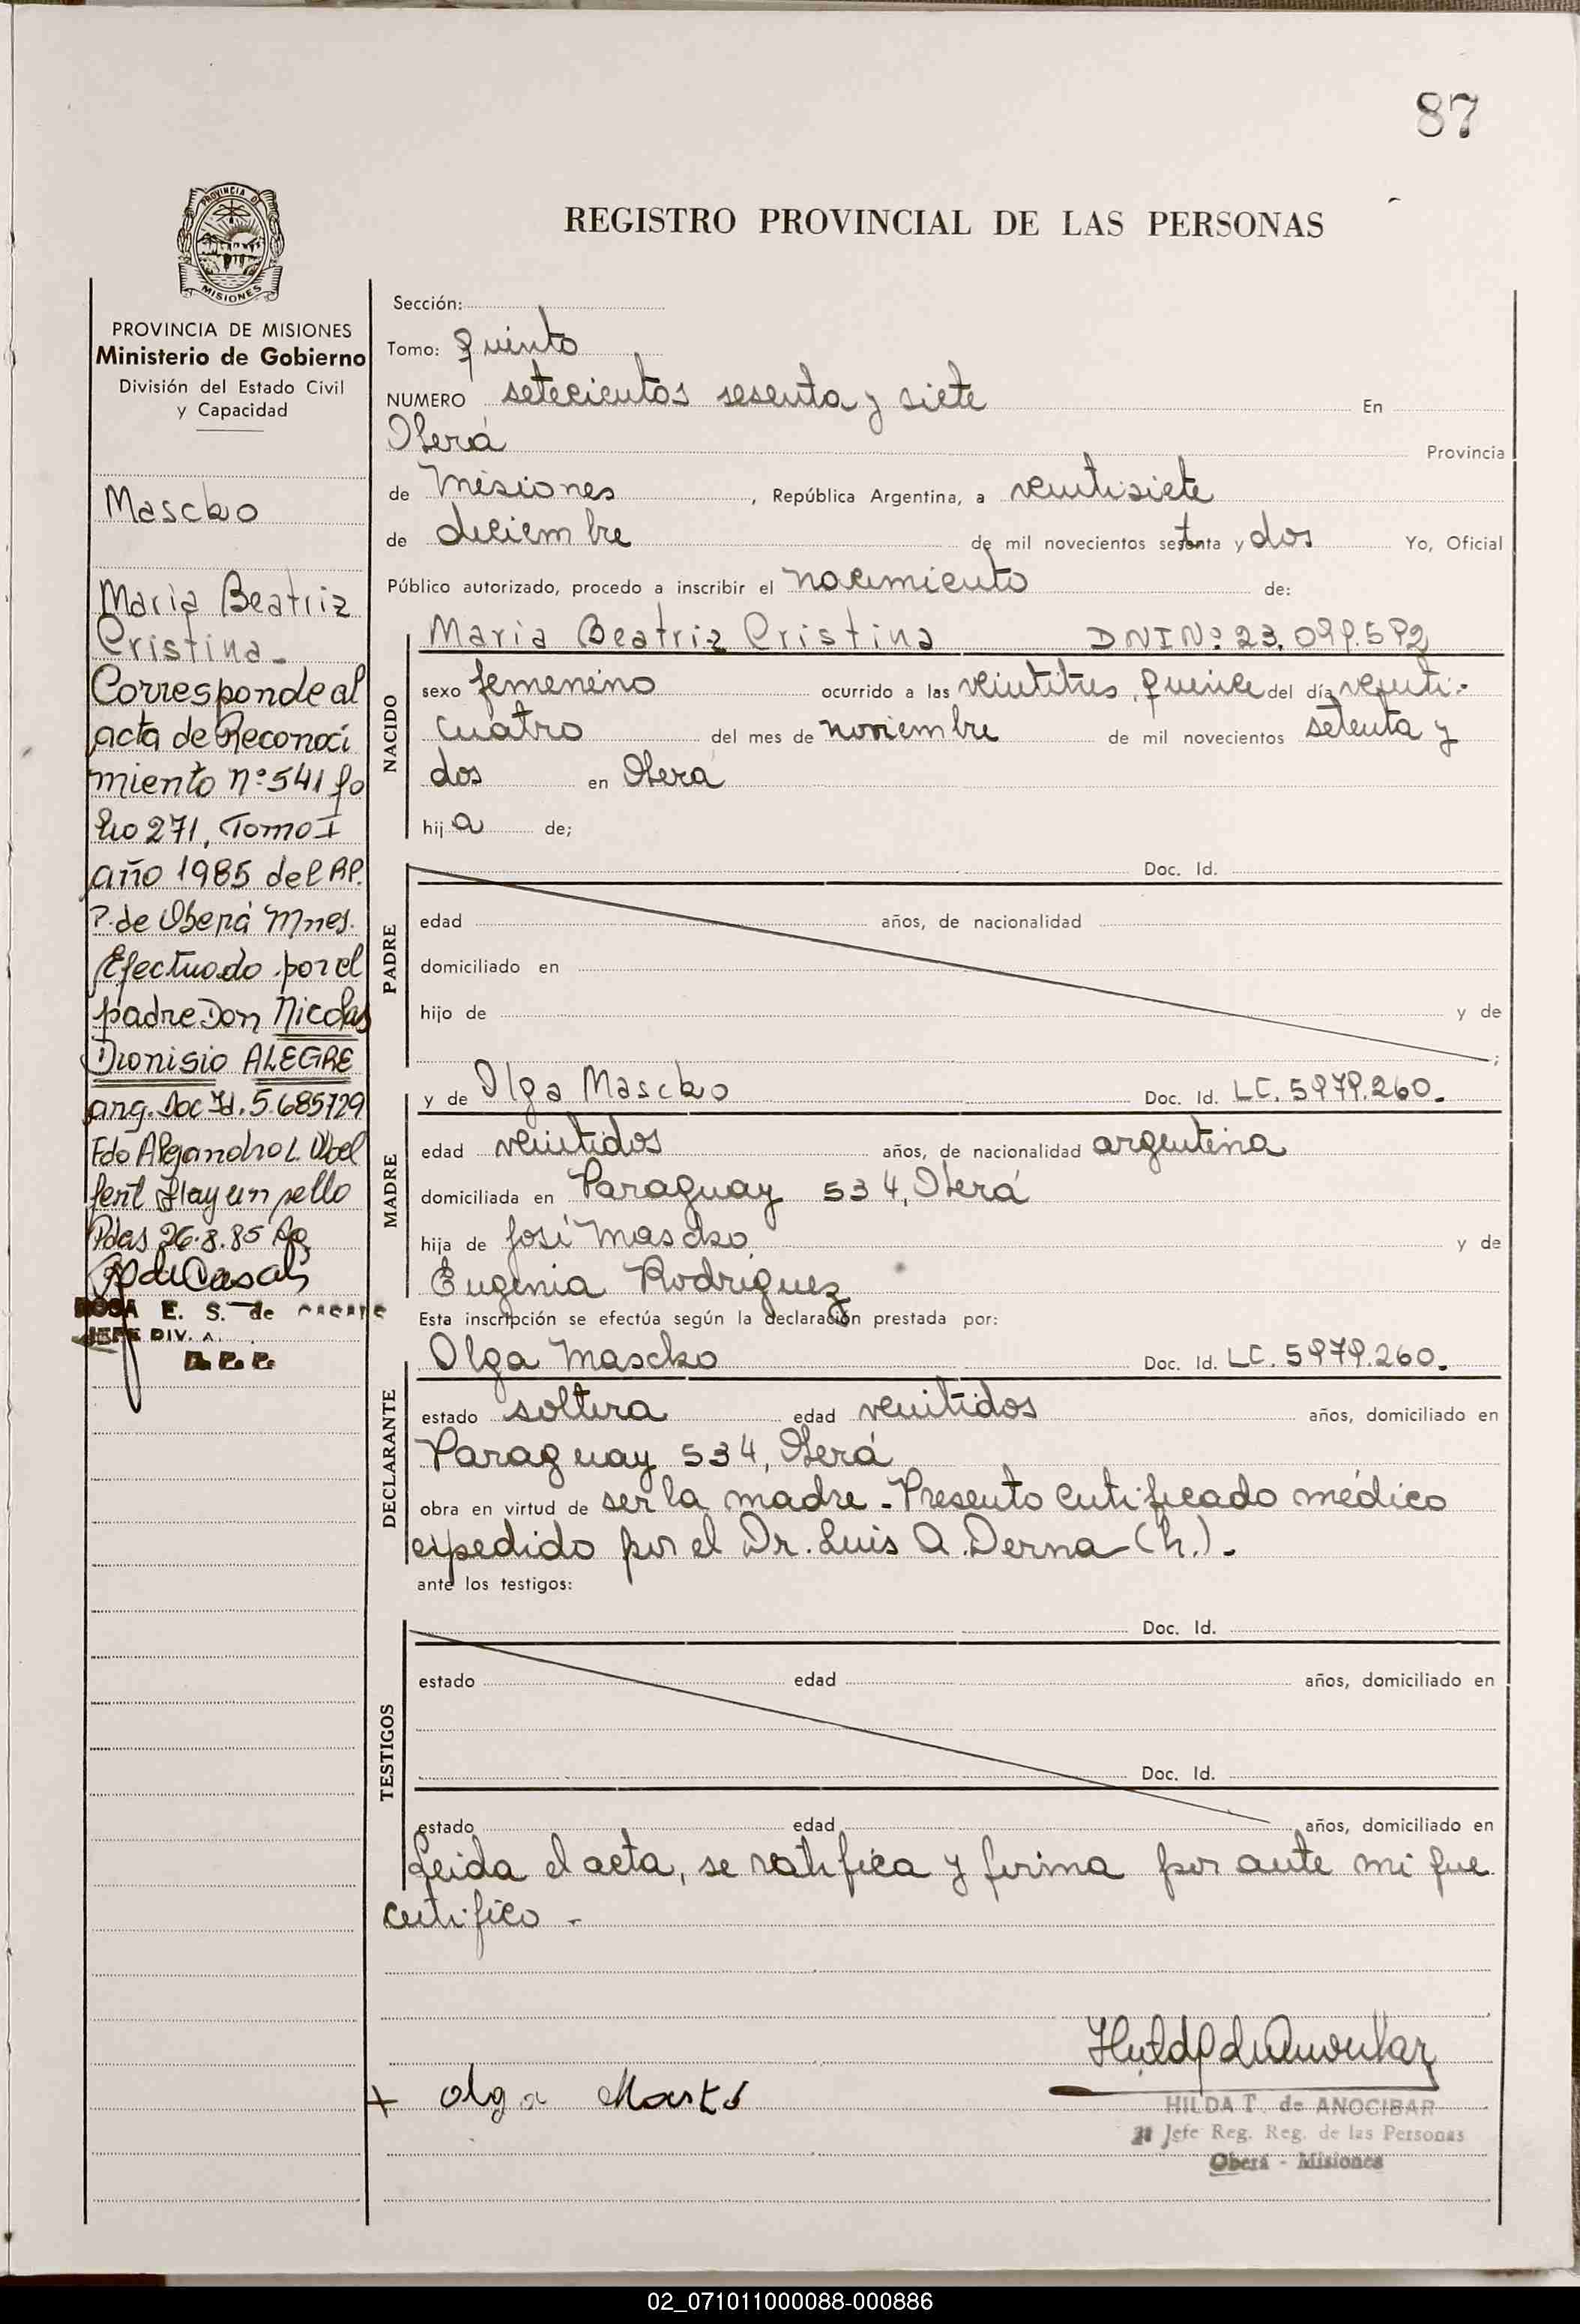 87
PROVINCIA DE
MISIONES
REGISTRO PROVINCIAL DE LAS PERSONAS
PROVINCIA DE MISIONES
Ministerio de Gobierno
División del Estado Civil
y Capacidad
Mascko
Maria Beatriz
Cristina-
Corresponde al
acta de Reconoci
miento nº 541 fo
lio 271, Tomo I
año 1985 del RP.
P. de Oberá Mnes.
Efectuado por el
padre Don Nicolas
Dionisio ALEGRE
arg. Doc Id. 5.685729
Fdo Alejandro L.
Hay un sello
Pdas 26.8.85
ROSA E. S. de
JEFE DIV. A.
Sección:
Tomo: quinto
NUMERO setecientos sesenta y siete En
Oberá Provincia
de Misiones, República Argentina, a veintisiete
de diciembre de mil novecientos setenta y dos Yo, Oficial
Público autorizado, procedo a inscribir el nacimiento de:
NACIDO
Maria Beatriz Cristina DNI Nº 23.099.592
sexo femenino ocurrido a las veintitres, quince del día veinti-
cuatro del mes de noviembre de mil novecientos setenta y
dos en Oberá
hij a de;
PADRE
Doc. Id.
edad años, de nacionalidad
domiciliado en
hijo de y de
;
MADRE
y de Olga Mascko Doc. Id. LC. 5979.260.
edad veintidos años, de nacionalidad argentina
domiciliada en Paraguay 534, Oberá
hija de José Mascko y de
Eugenia Rodriguez
Esta inscripción se efectúa según la declaración prestada por:
DECLARANTE
Olga Mascko Doc. Id. LC. 5979.260.
estado soltera edad veintidos años, domiciliado en
Paraguay 534, Oberá
obra en virtud de ser la madre - Presento certificado médico
expedido por el Dr. Luis A. Derna (h.).-
ante los testigos:
TESTIGOS
Doc. Id.
estado edad años, domiciliado en
Doc. Id.
estado edad años, domiciliado en
Leida el acta, se ratifica y firma por ante mi que
certifico -
+ olga
HILDA T. de ANOCIBAR
Jefe Reg. Reg. de las Personas
Oberá - Misiones
02_071011000088-000886